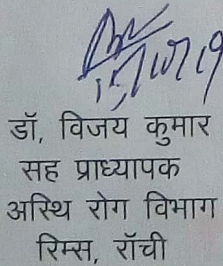 15/10/19
डॉ, विजय कुमार
सह प्राध्यापक
अस्थि रोग विभाग
रिम्स, रॉची